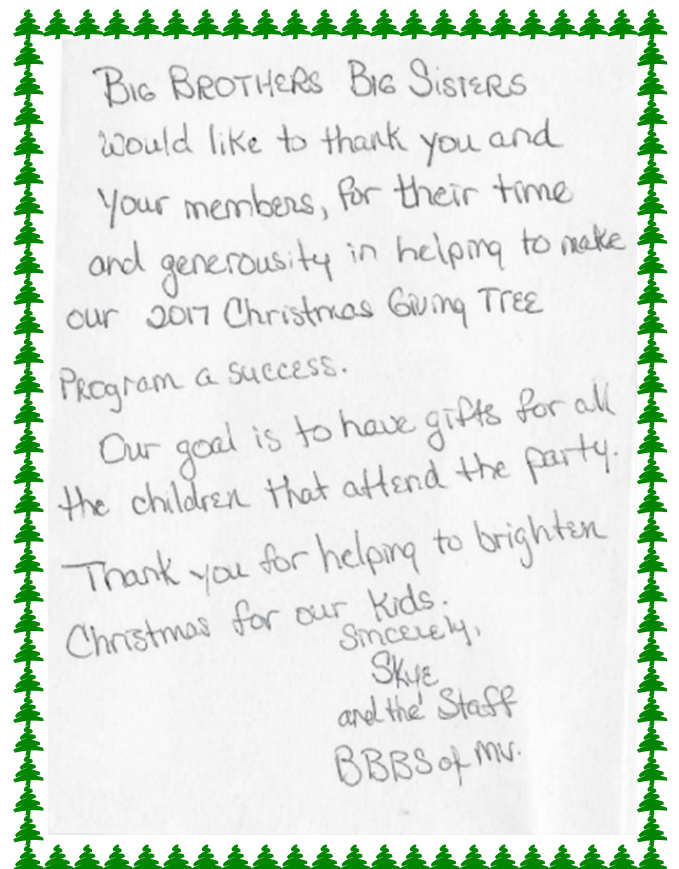 BIG BROTHERS BIG SISTERS
would like to thank you and
your members, for their time
and generousity in helping to make
our 2017 Christmas Giving TREE
Program a success.
Our goal is to have gifts for all
the children that attend the party.
Thank you for helping to brighten
Christmas for our kids.
Sincerely,
Skye
and the Staff
BBBS of MV.